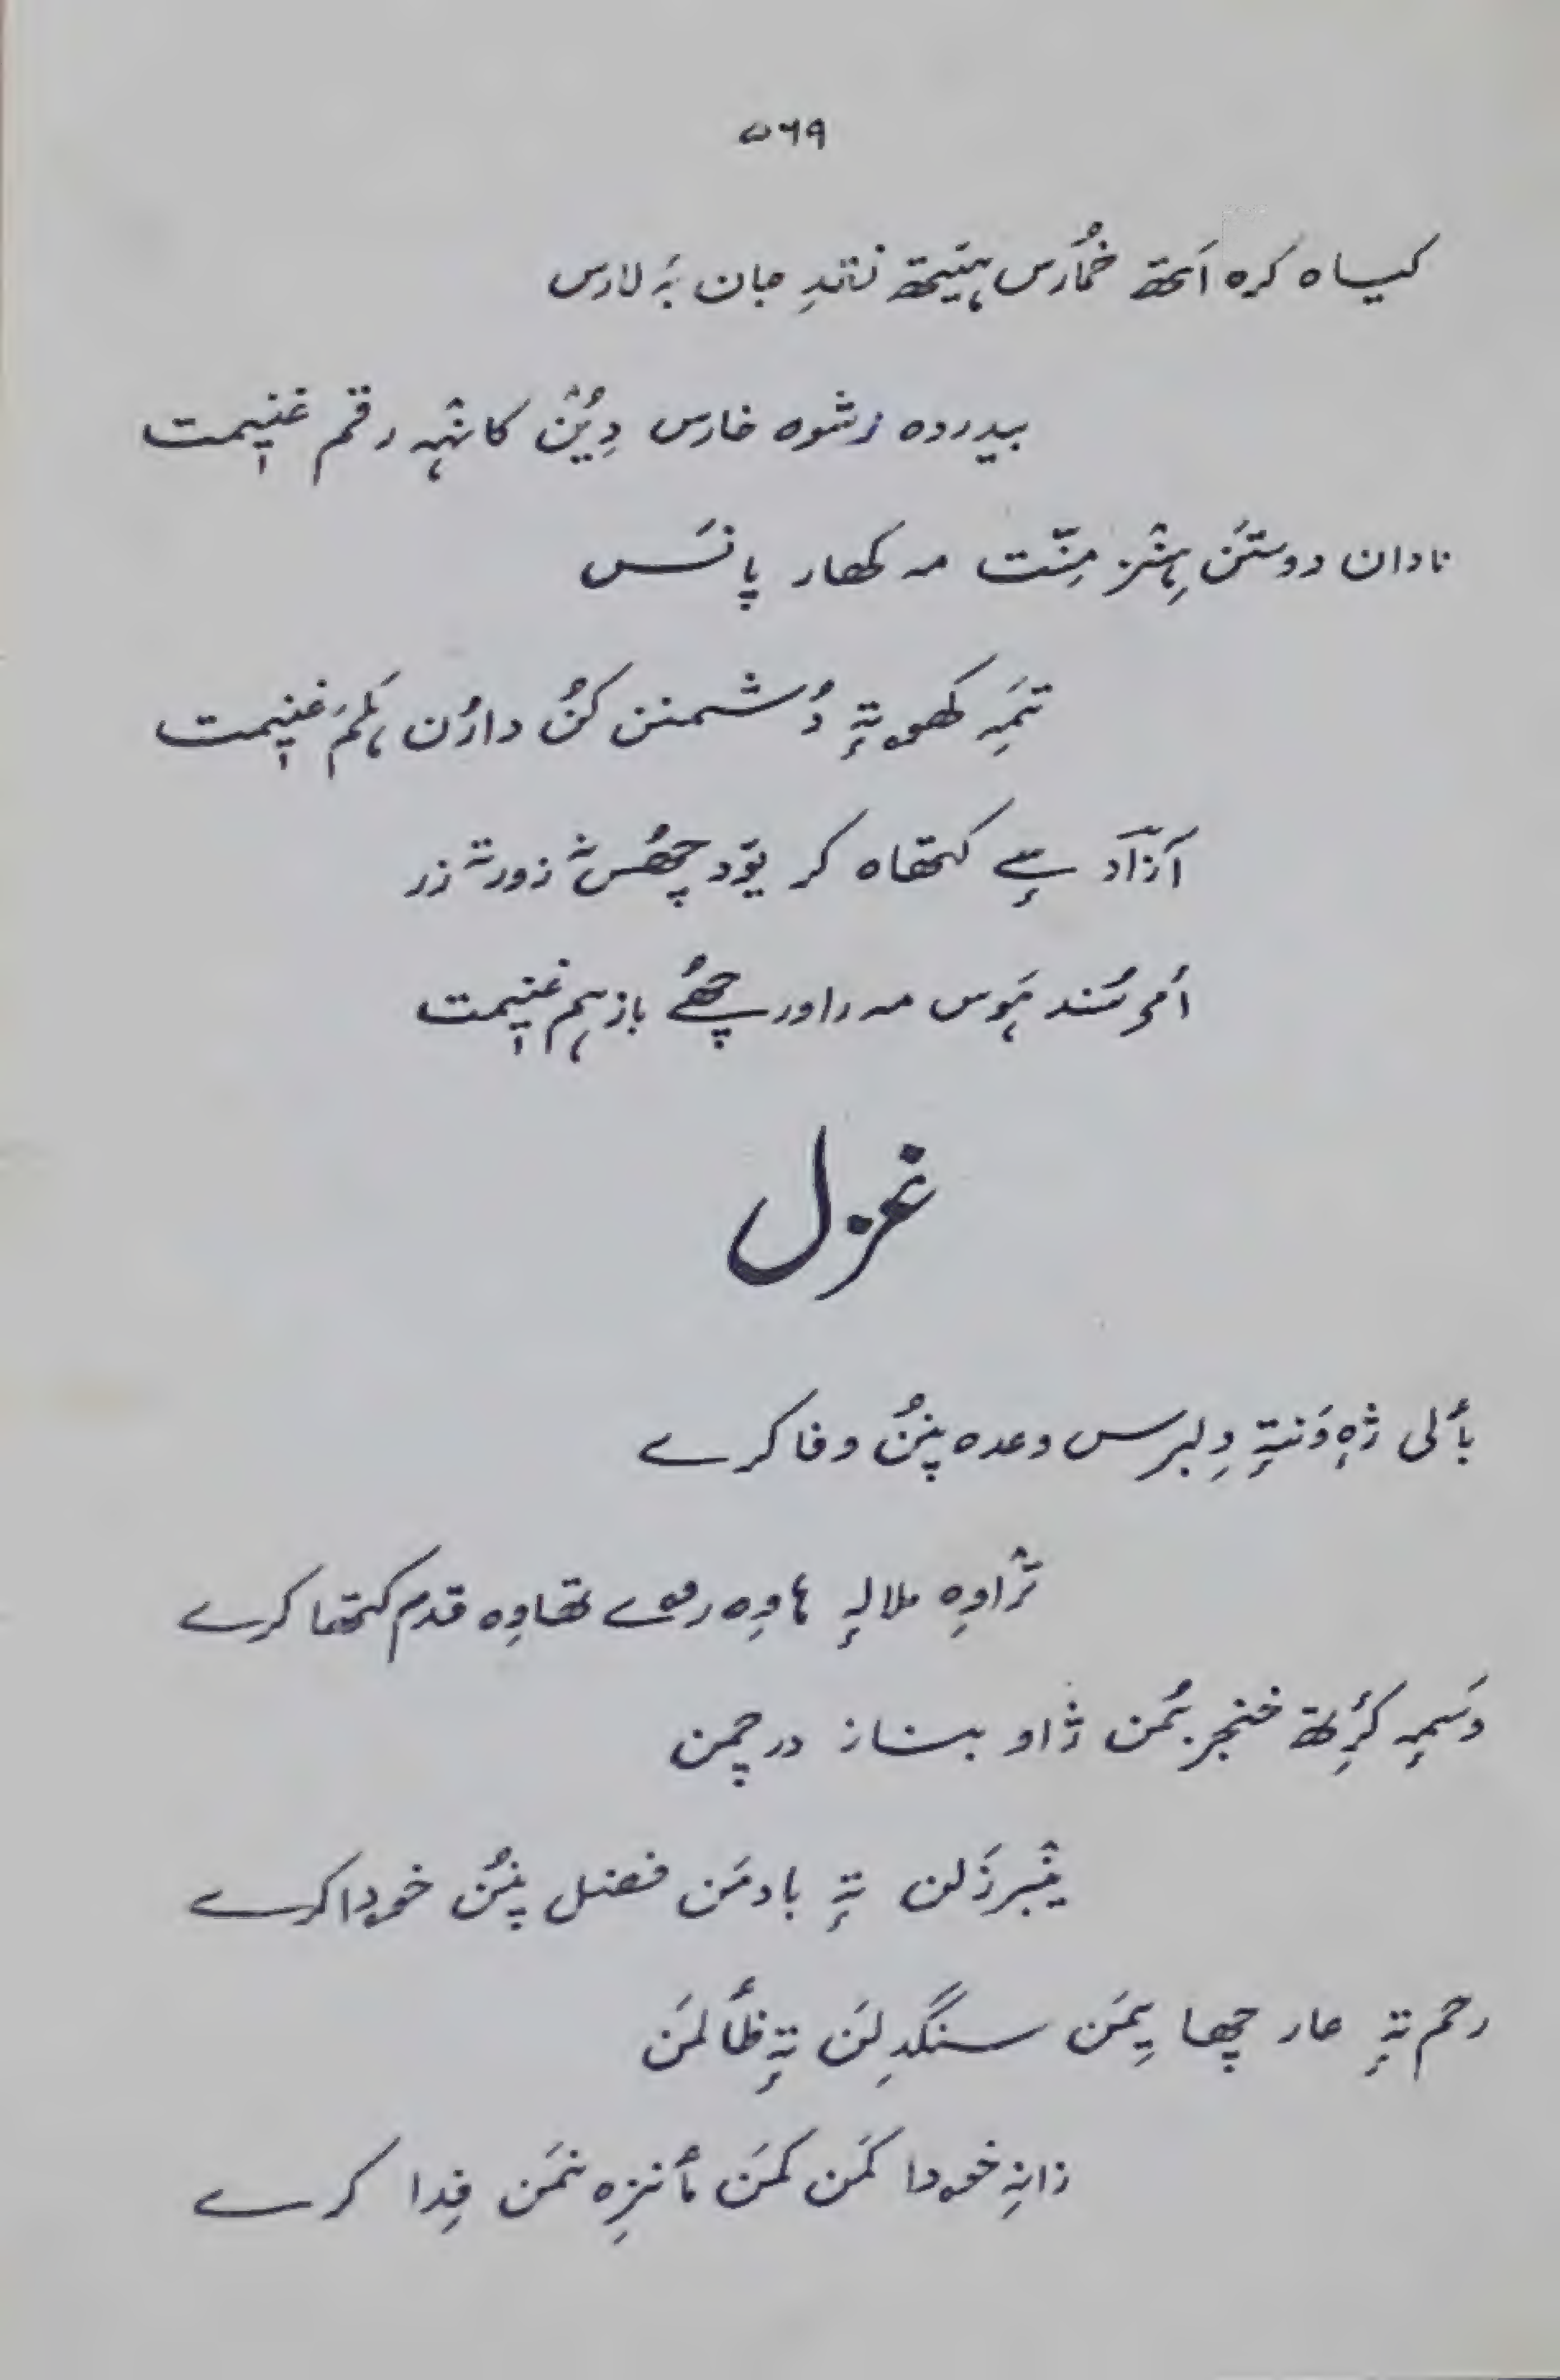 ۵۶۹
کیساہ کرہ اَتھ خُمارَس ہیٚتھ نقدِ جان بہٕ لارس
بیدردہ رشوہ خارس دِیُٛن کانٛہہ رقم غنیٖمت
نادان دوستَن ہِنٛز مِنّت مہ کھار پانَس
تَمہِ کھۄتہٕ دُشمنن کُن دارُن ہَلَم غنیٖمت
آزاد سٕے کتھاہ کر یۆد چھُس نہٕ زور تہٕ زر
اَمۍ سُند ہَوس مہ راور چھُے باز ہم غنیٖمت
غزل
بٲلی ژٕہ وَنتہٕ دِلبرس وعدہ پنُن وفا کرے
ترٛاوِہ ملالہٕ ہاوِہ رۄے تھاوِہ قدم کتھا کرے
وَسمہٕ کٔرِتھ خنجر بُمن ژاو بناز در چمن
ینٛبرزَلن تہٕ بادمَن فضل پنُن خۄدا کرے
رحم تہٕ عار چھا یِمَن سنگدِلَن تہٕ ظٲلمَن
زانہِ خۄدا کَمَن کَمَن مٲنزِہ نمَن فِدا کرے